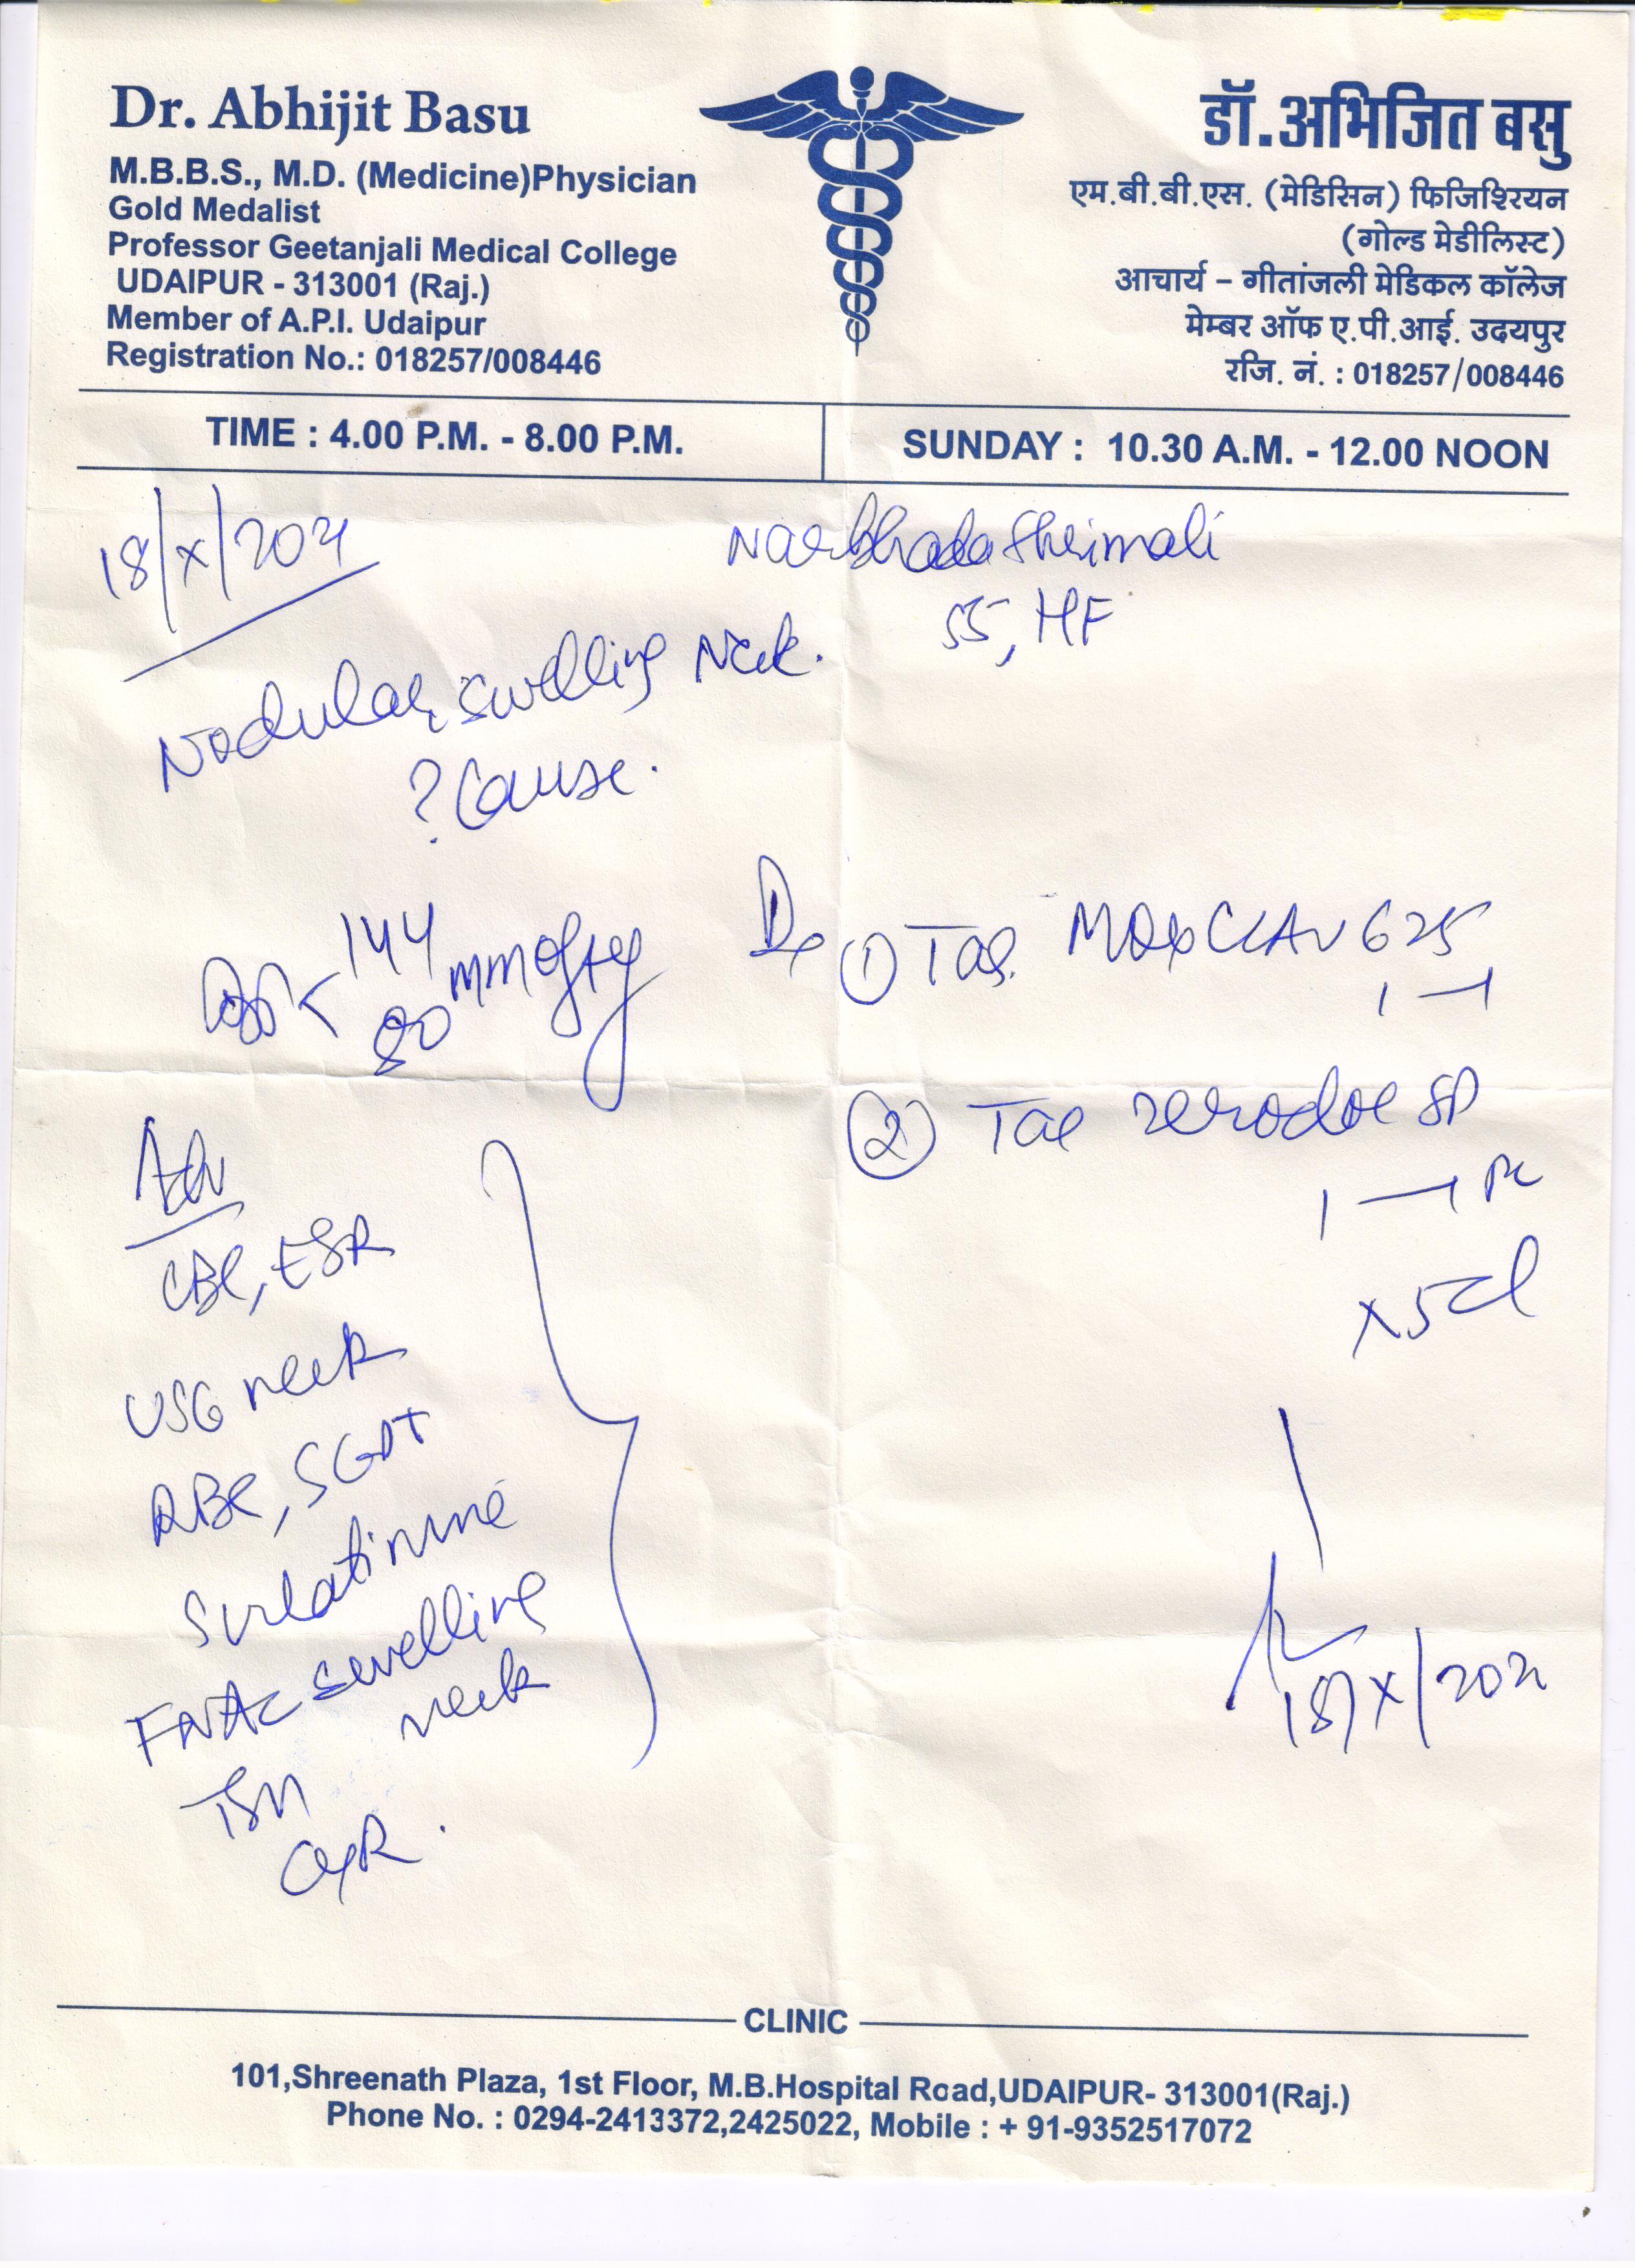 Dr. Abhijit Basu
M.B.B.S., M.D. (Medicine)Physician
Gold Medalist
Professor Geetanjali Medical College
UDAIPUR - 313001 (Raj.)
Member of A.P.I. Udaipur
Registration No.: 018257/008446
डॉ.अभिजित बसु
एम.बी.बी.एस. (मेडिसिन) फिजिश्रियन
(गोल्ड मेडीलिस्ट)
आचार्य – गीतांजली मेडिकल कॉलेज
मेम्बर ऑफ ए.पी.आई. उदयपुर
रजि. नं. : 018257/008446
TIME : 4.00 P.M. - 8.00 P.M.
SUNDAY : 10.30 A.M. - 12.00 NOON
18/X/2021
Narbhada Shrimali
55, HF
Nodular swelling Neck.
? Cause.
144
80 mmofHg
Rx
① Tab. MOXCLAV 625
1 — 1
② Tab Zerodol SP
1 — 1 PC
x5d
Adv
CBC, ESR
USG neck
RBS, SGPT
S creatinine
FNAC swelling
neck
TSH
CXR.
18/X/2021
CLINIC
101,Shreenath Plaza, 1st Floor, M.B.Hospital Road,UDAIPUR- 313001(Raj.)
Phone No. : 0294-2413372,2425022, Mobile : + 91-9352517072